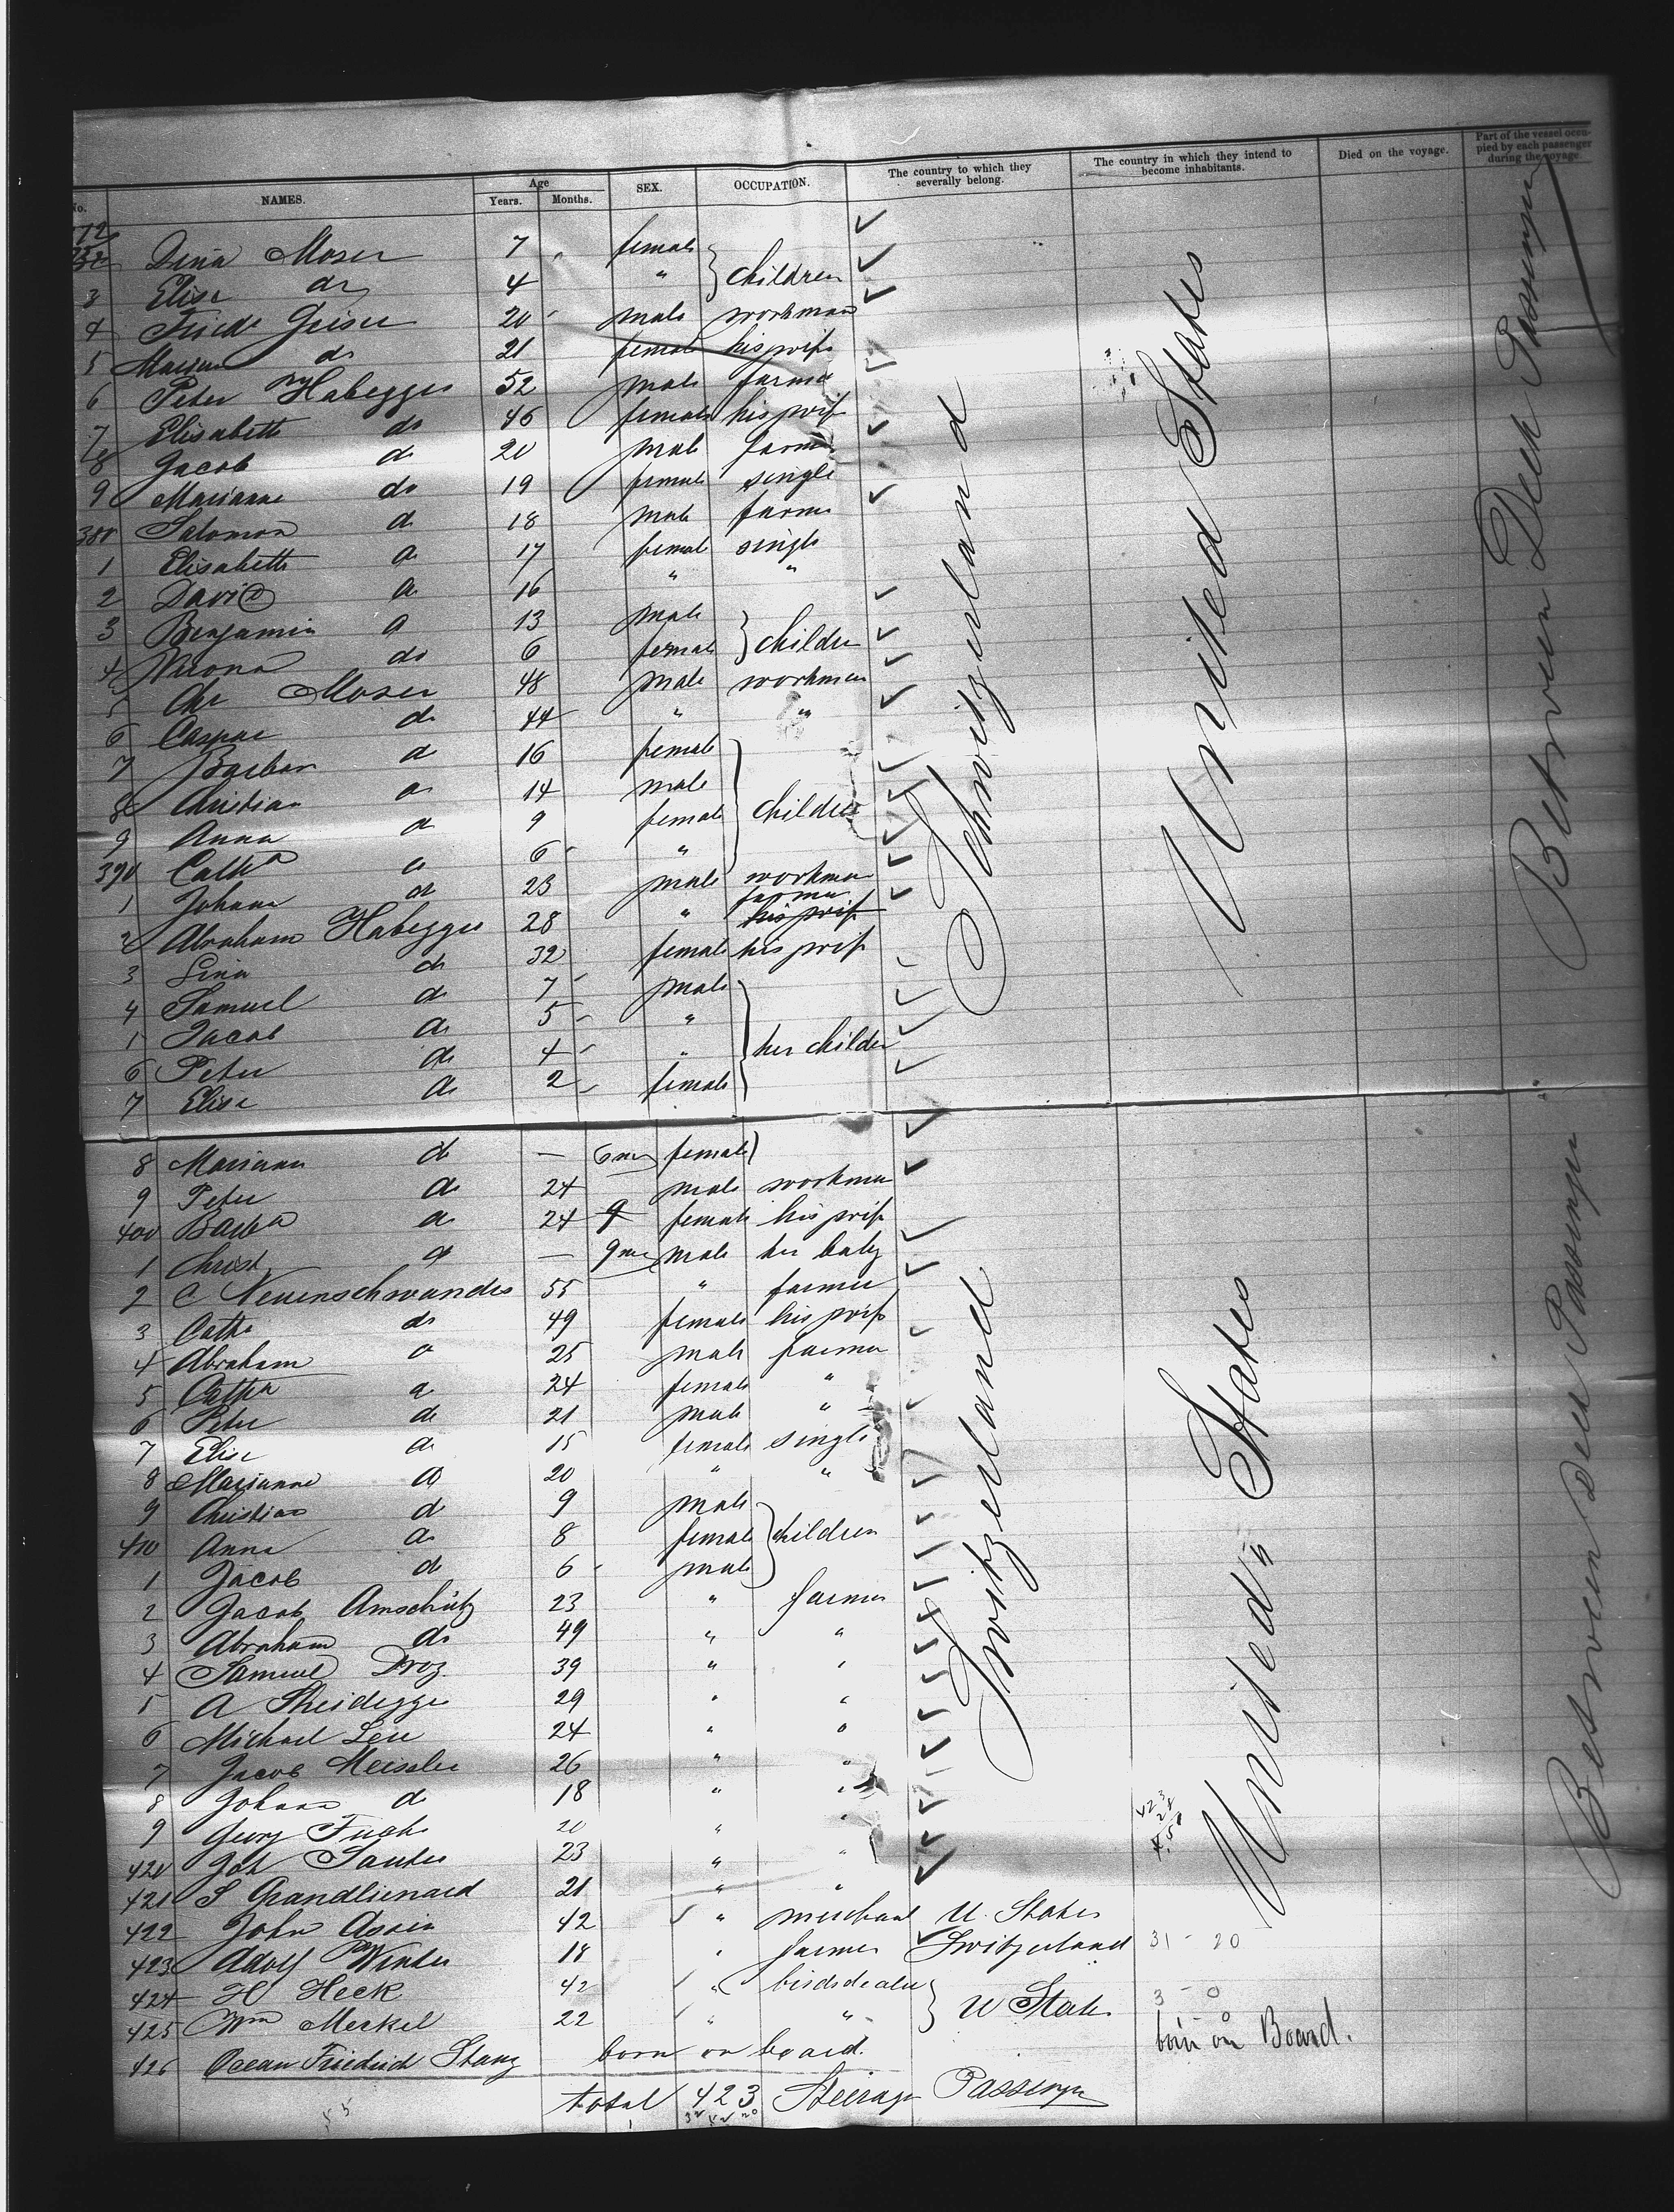 No. NAMES. Age Years. Months. SEX. OCCUPATION. The country to which they severally belong. The country in which they intend to become inhabitants. Died on the voyage. Part of the vessel occupied by each passenger during the voyage.
Lina Moser 7 female } children
3 Elise do 4 "
4 Friedr Geiser 20 male workman
5 do 21 female his wife
6 Peter Habegger 52 male farmer
7 Elisabeth do 46 female his wife
8 Jacob do 20 male farmer
9 Marianne do 19 female single
380 Salomon do 18 male farmer
1 Elisabeth do 17 female single
2 David do 16 " "
3 Benjamin do 13 male } children
4 Verona do 6 female
5 Chr Moser 48 male workman
6 Caspar do 44 " "
7 Barbar do 16 female } children
8 Christian do 14 male
9 Anna do 9 female
390 Catha do 6 "
1 Johann do 23 male workman
2 Abraham Habegger 28 " farmer his wife
3 Lina do 32 female his wife
4 Samuel do 7 male } her children
Jacob do 5 "
6 Peter do 4 "
7 Elise do 2 female
Schwitzerland
United States
Between Deck Passenger
8 Mariann do — 6 mo female
9 Peter do 24 male workman
400 Barba do 24 9 female his wife
1 Christ do — 9 mo male her baby
2 C Neuenschwander 55 " farmer
3 Catha do 49 female his wife
4 Abraham do 25 male farmer
5 Catha do 24 female "
6 Peter do 21 male "
7 Elise do 15 female single
8 Marianne do 20 " "
9 Christian do 9 male } children
410 Anna do 8 female
1 Jacob do 6 male
2 Jacob Amschütz 23 " farmer
3 Abraham do 49 " "
4 Samuel Droz 39 " "
5 A Sheidegger 29 " "
6 Michael Leu 24 " "
7 Jacob Meissler 26 " "
8 Johann do 18 " "
9 Georg Fuchs 20 " "
420 Joh Sauter 23 " "
421 S Grandlienard 21 " "
422 John 42 " merchant U. States
423 Adolf Winter 18 " farmer Switzerland 31 - 20
424 H Heck 42 " birdsdealer } U States 3 - 0
425 Wm Merkel 22 " "
426 Ocean Friedrich Stang born on board. born on Board.
total 423 Steerage Passenger
Switzerland
United States
Between Deck Passenger
55